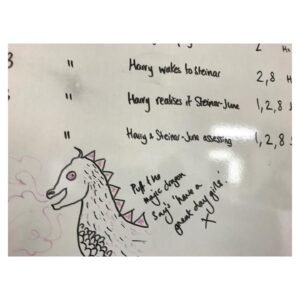 2
3 " Harry wakes to Steinar 2,8
" Harry realises it Steinar-June 1,2,8
" Harry & Steinar-June assessing 1,2,8
Puff the
magic dragon
says 'have a
great day girls.'
X